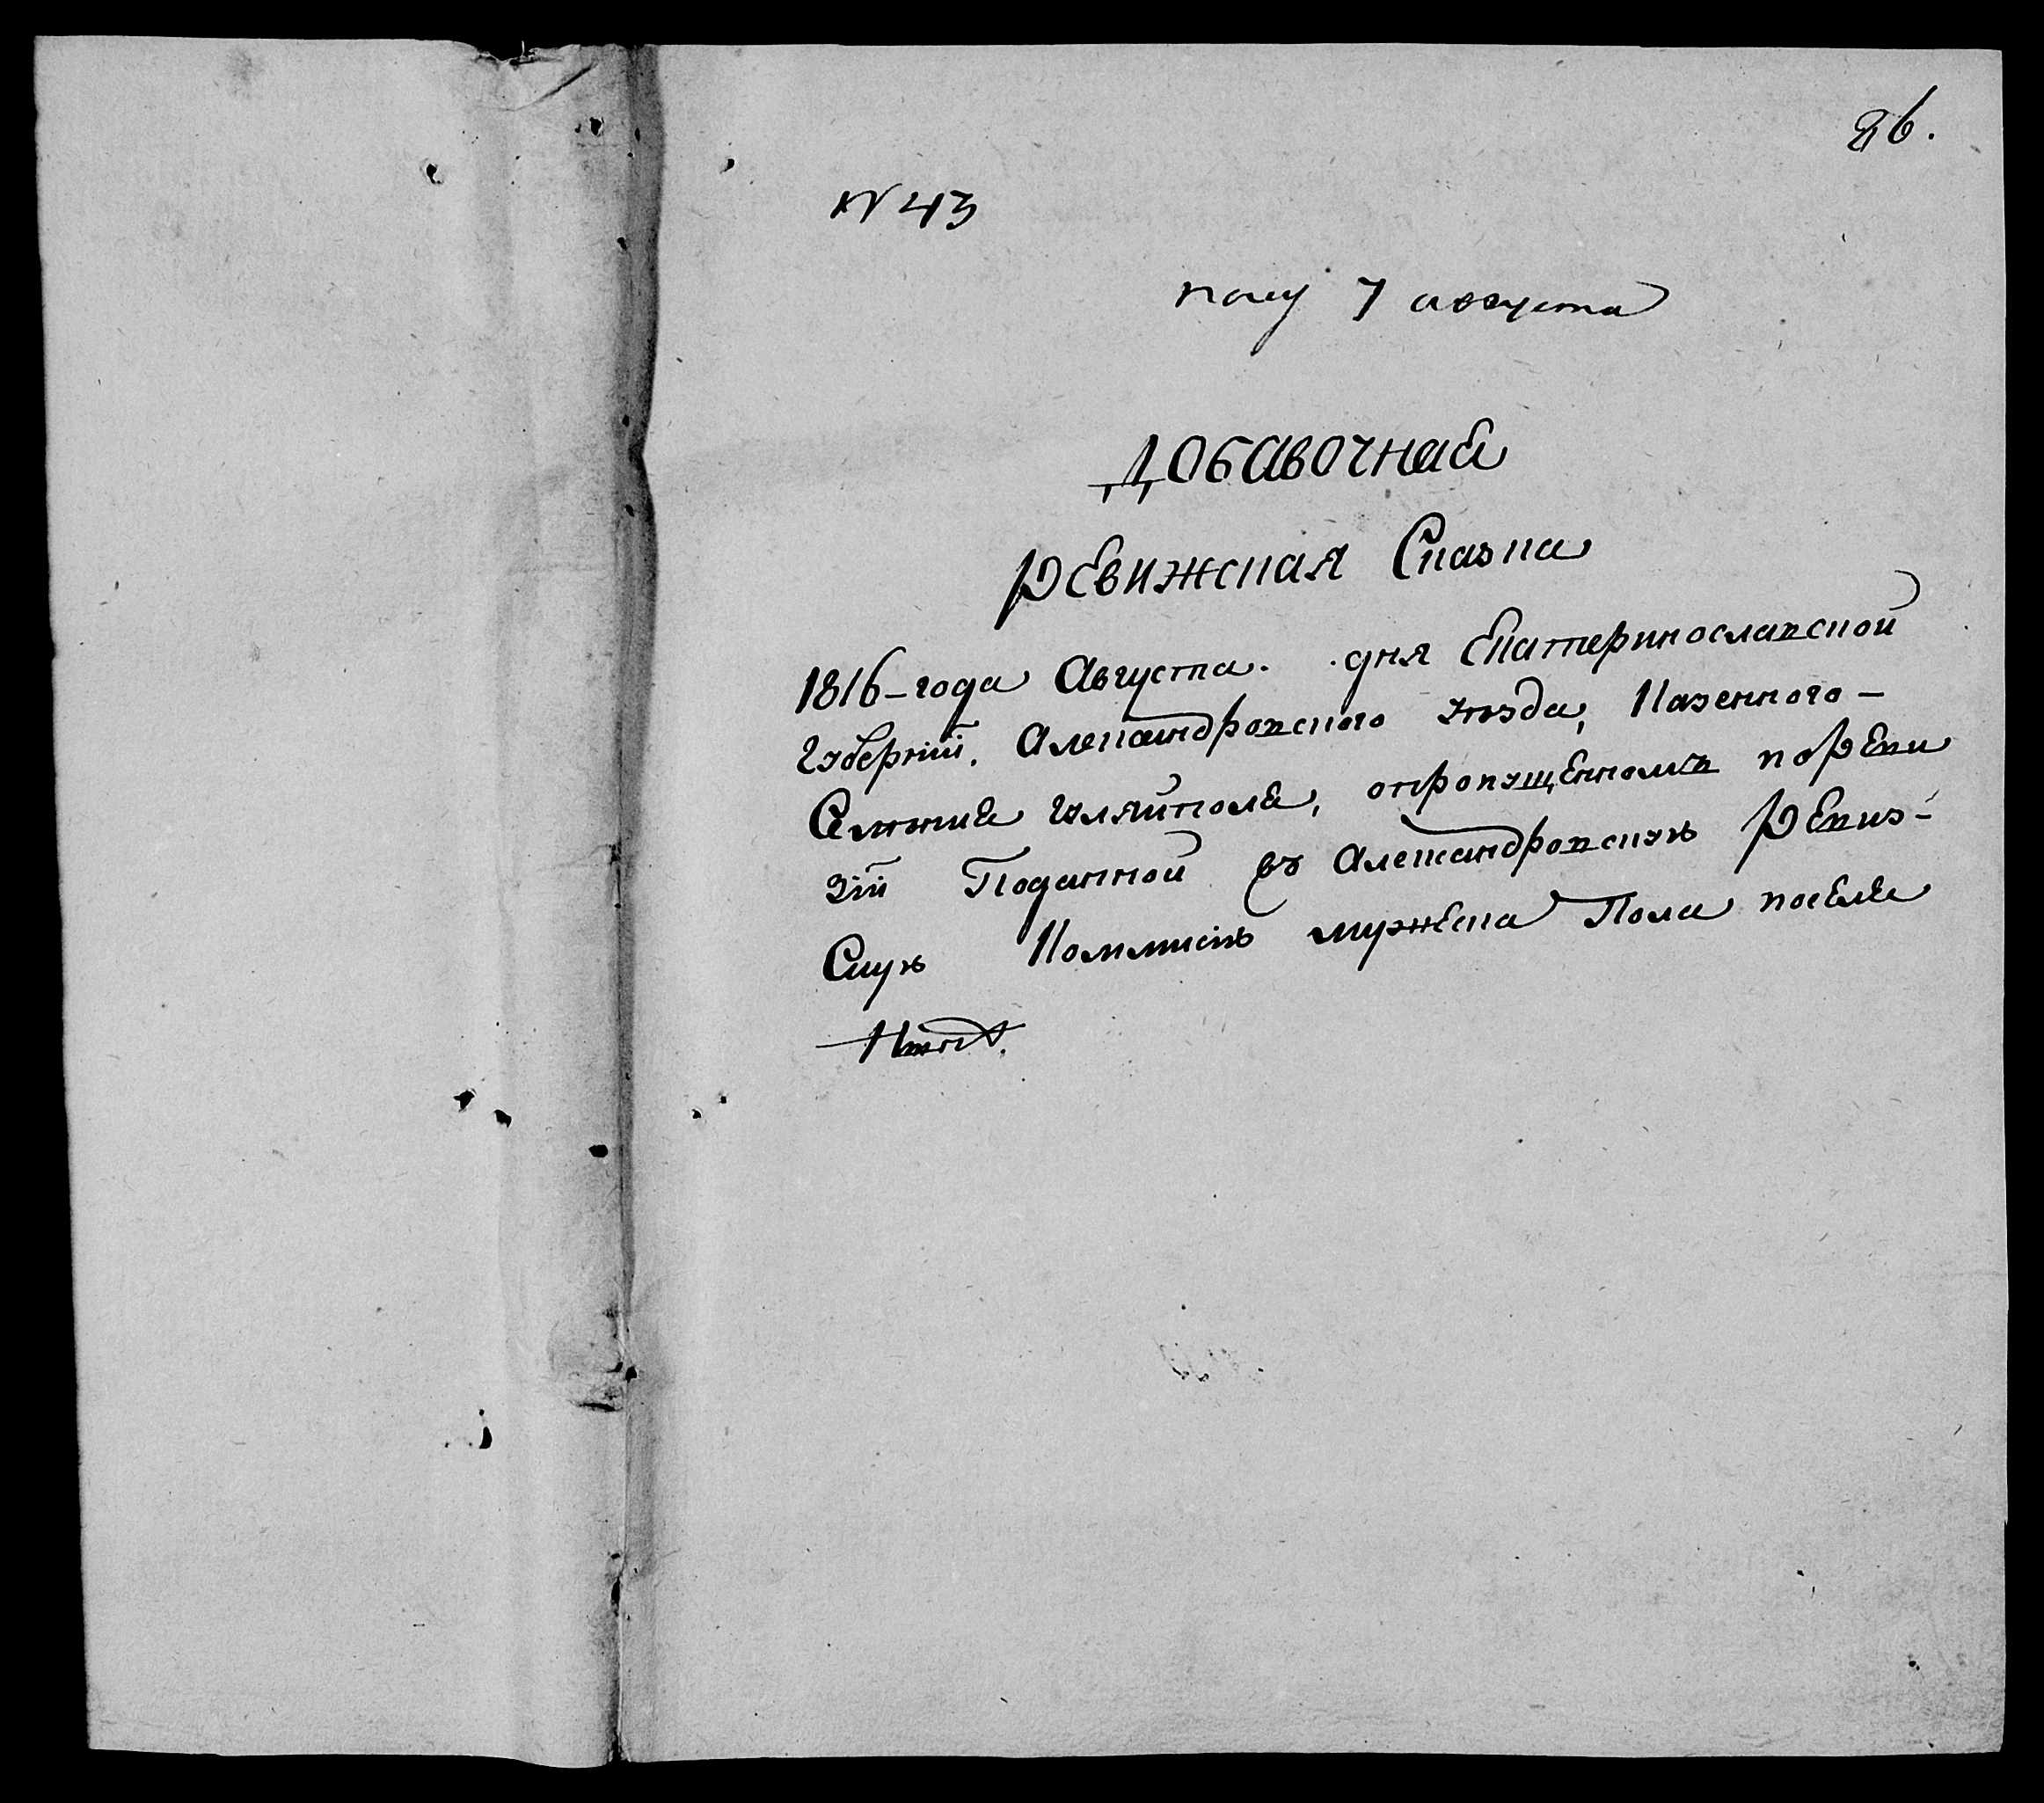 86.
№ 43
полу 7 августа
Добавочная
Ревижская Сказка
1816-года Августа. дня Екатеринославской
Губернїи, Александровского уезда, Казенного-
Селения Гуляйполя, опропущенномъ поРеви
зїи Поданной въ Александровскую Ревиз-
Скую Коммисїю мужеска Пола поселе